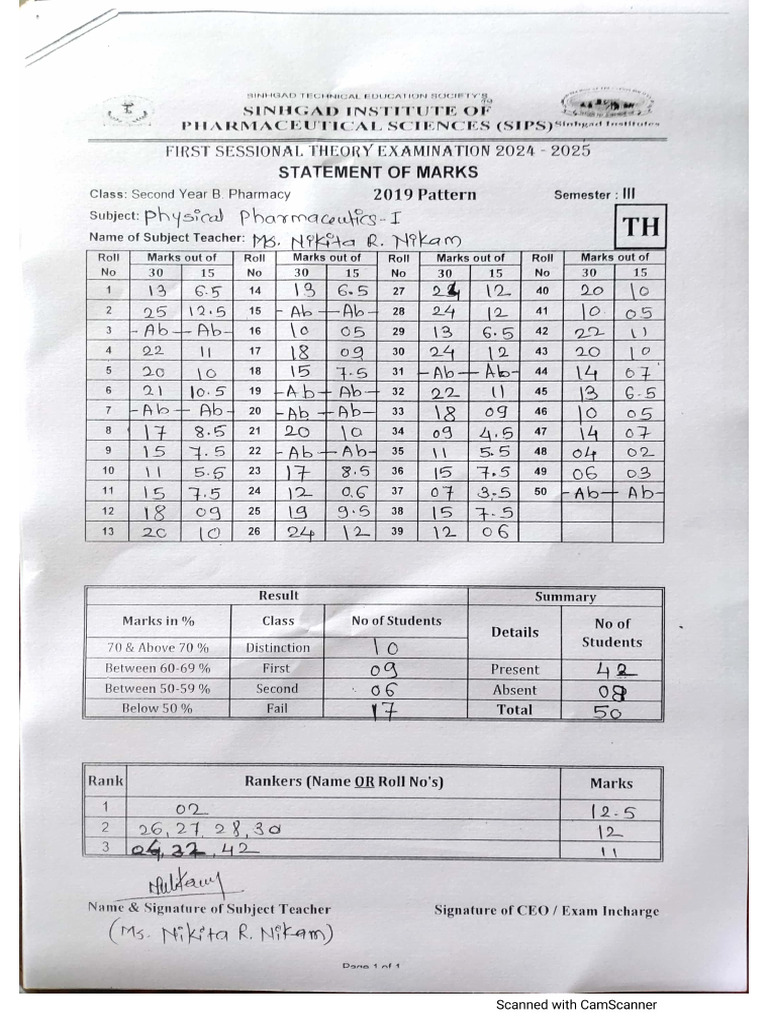 SINHGAD TECHNICAL EDUCATION SOCIETY'S
SINHGAD INSTITUTE OF
PHARMACEUTICAL SCIENCES (SIPS)
Sinhgad Institutes
FIRST SESSIONAL THEORY EXAMINATION 2024 - 2025
STATEMENT OF MARKS
Class: Second Year B. Pharmacy 2019 Pattern Semester : III
Subject: Physical Pharmaceutics-I
TH
Name of Subject Teacher: Ms. Nikita R. Nikam
Roll Marks out of Roll Marks out of Roll Marks out of Roll Marks out of
No 30 15 No 30 15 No 30 15 No 30 15
1 13 6.5 14 13 6.5 27 24 12 40 20 10
2 25 12.5 15 -Ab- -Ab- 28 24 12 41 10 05
3 -Ab- -Ab- 16 10 05 29 13 6.5 42 22 11
4 22 11 17 18 09 30 24 12 43 20 10
5 20 10 18 15 7.5 31 -Ab- -Ab- 44 14 07
6 21 10.5 19 -Ab- -Ab- 32 22 11 45 13 6.5
7 -Ab- -Ab- 20 -Ab- -Ab- 33 18 09 46 10 05
8 17 8.5 21 20 10 34 09 4.5 47 14 07
9 15 7.5 22 -Ab- -Ab- 35 11 5.5 48 04 02
10 11 5.5 23 17 8.5 36 15 7.5 49 06 03
11 15 7.5 24 12 0.6 37 07 3.5 50 -Ab- -Ab-
12 18 09 25 19 9.5 38 15 7.5
13 20 10 26 24 12 39 12 06
Result Summary
Marks in % Class No of Students Details No of Students
70 & Above 70 % Distinction 10
Between 60-69 % First 09 Present 42
Between 50-59 % Second 06 Absent 08
Below 50 % Fail 17 Total 50
Rank Rankers (Name OR Roll No's) Marks
1 02 12.5
2 26, 27, 28, 30 12
3 04, 32, 42 11
Name & Signature of Subject Teacher Signature of CEO / Exam Incharge
(Ms. Nikita R. Nikam)
Page 1 of 1
Scanned with CamScanner